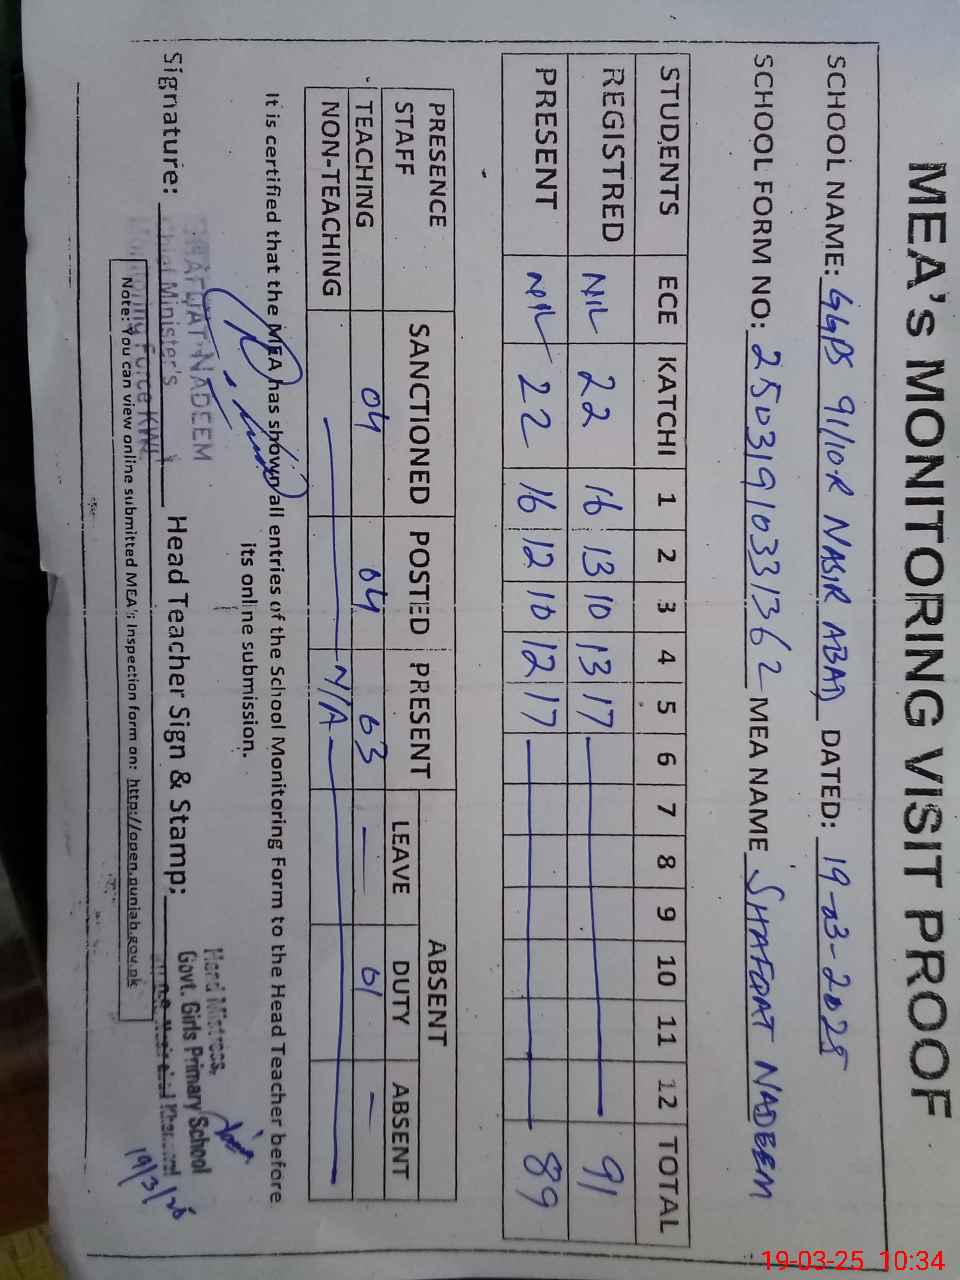 MEA's MONITORING VISIT PROOF
SCHOOL NAME: GGPS 91/10-R NASIR ABAD DATED: 19-03-2025
SCHOOL FORM NO: 25031910331362 MEA NAME SHAFQAT NADEEM
STUDENTS ECE KATCHI 1 2 3 4 5 6 7 8 9 10 11 12 TOTAL
REGISTRED NIL 22 16 13 10 13 17 91
PRESENT NIL 22 16 12 10 12 17 89
PRESENCE STAFF SANCTIONED POSTED PRESENT ABSENT
LEAVE DUTY ABSENT
TEACHING 04 04 03 — 01 —
NON-TEACHING N/A
It is certified that the MEA has shown all entries of the School Monitoring Form to the Head Teacher before
its online submission.
Signature: Head Teacher Sign & Stamp:
SHAFQAT NADEEM
Chief Minister's
Monitoring Force KWL
Head Mistress,
Govt. Girls Primary School
19/3/25
Note: You can view online submitted MEA's Inspection form on: http://open.punjab.gov.pk
19-03-25 10:34